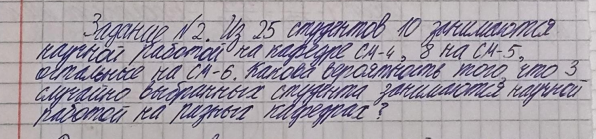 Задание №2. Из 25 студентов 10 занимаются
научной работой на кафедре СМ-4, 8 на СМ-5,
остальные на СМ-6. Какова вероятность того, что 3
случайно выбранных студента занимаются научной
работой на разных кафедрах?